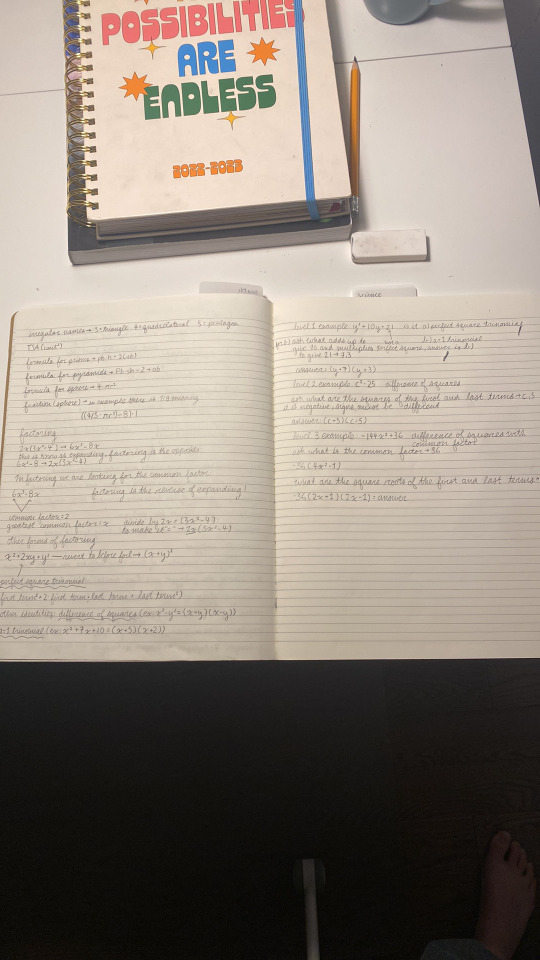 POSSIBILITIES
ARE
ENDLESS
2022-2023
science
irregular names → 3=triangle 4=quadrilateral 5=pentagon
TSA (unit²)
formula for prisms → ph + 2(ab)
formula for pyramids →
formula for sphere → 4πr²
function (sphere) → in example there is
factoring
2x(3x²-4) → 6x³-8x
this is known as expanding, factoring is the opposite:
6x³-8 → 2x(3x²-4)
In factoring we are looking for the common factor
6x³-8x factoring is the reverse of expanding!
common factor=2
greatest common factor: x divide by 2x = (3x²-4)
to make it = " → 2x(3x²-4)
other forms of factoring
x²+2xy+y² — revert to before foil → (x+y)²
perfect square trinomial
first term²+2 first term × last term + last term²)
other identities: difference of squares (ex: x²-y² = (x+y)(x-y))
a=1 trinomial (ex: x²+7x+10 = (x+5)(x+2))
level 1 example y²+10y+21 is it a) perfect square trinomial
b) a=1 trinomial
ask what adds up to
give 10 and multiplies perfect square, answer is b)
to give 21 → 7,3
answer: (y+7)(y+3)
level 2 example: c²-25 difference of squares
ask what are the squares of the first and last terms → c, 5
is negative, signs must be different
answer: (c+5)(c-5)
level 3 example: -144x²+36 difference of squares with
common factor
ask what is the common factor → 36
-36(4x²-1)
what are the square roots of the first and last terms
-36(2x+1)(2x-1) = answer